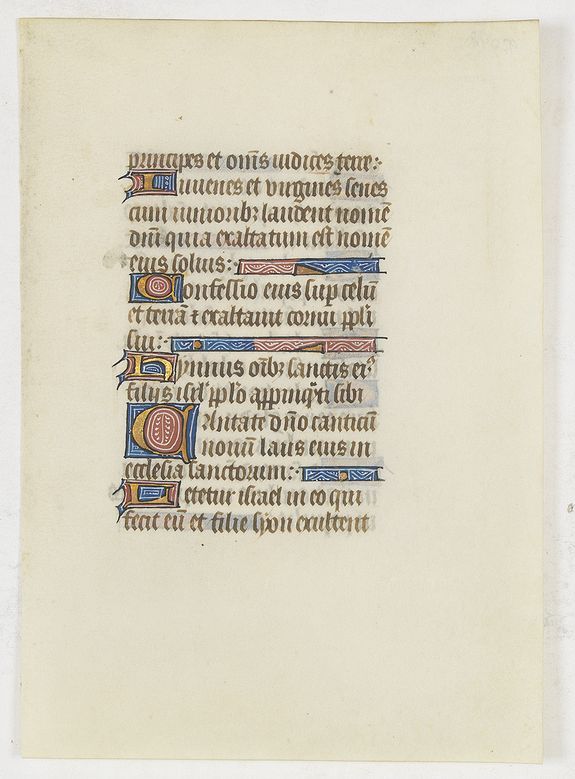 principes et om̄s iudices terre:
Iuuenes et virgines senes
cum iunioribꝫ laudent nomē
dn̄i quia exaltatum est nomē
eius solius:
Confessio eius sup celū
et terrā ⁊ exaltauit cornu ppl̄i
sui:
Hymnus om̄ibꝫ sanctis eiꝰ
filijs isrl̄ ppl̄o appinq̄nti sibi
Cantate dn̄o canticū
nouū laus eius in
ecclesia sanctorum:
Letetur israel in eo qui
fecit eū et filie syon exultent